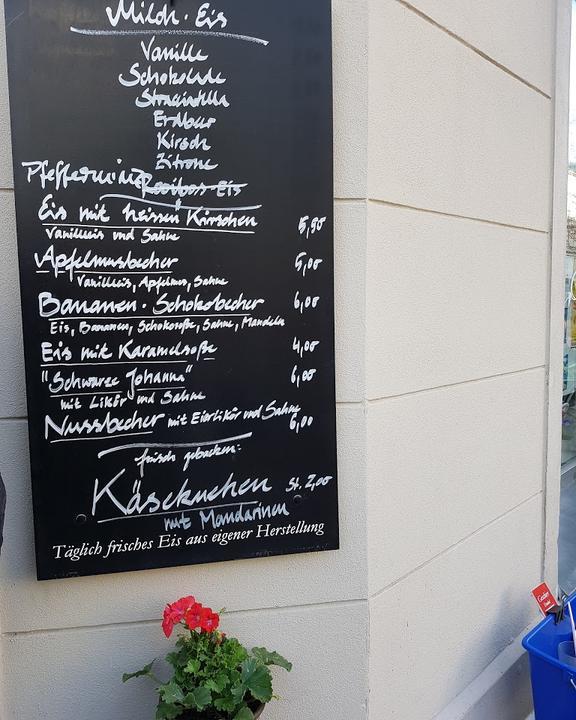 Milch-Eis
Vanille
Schokolade
Straciatella
Erdbeer
Kirsch
Zitrone
Pfefferminz Rooibos-Eis
Eis mit heissen Kirschen 5,50
Vanilleeis und Sahne
Apfelmusbecher 5,00
Vanilleeis, Apfelmus, Sahne
Bananen-Schokobecher 6,00
Eis, Bananen, Schokosoße, Sahne, Mandeln
Eis mit Karamelsoße 4,00
"Schwarze Johanna" 6,00
mit Likör und Sahne
Nussbecher mit Eierlikör und Sahne 6,00
frisch gebacken:
Käsekuchen St. 2,00
mit Mandarinen
Täglich frisches Eis aus eigener Herstellung